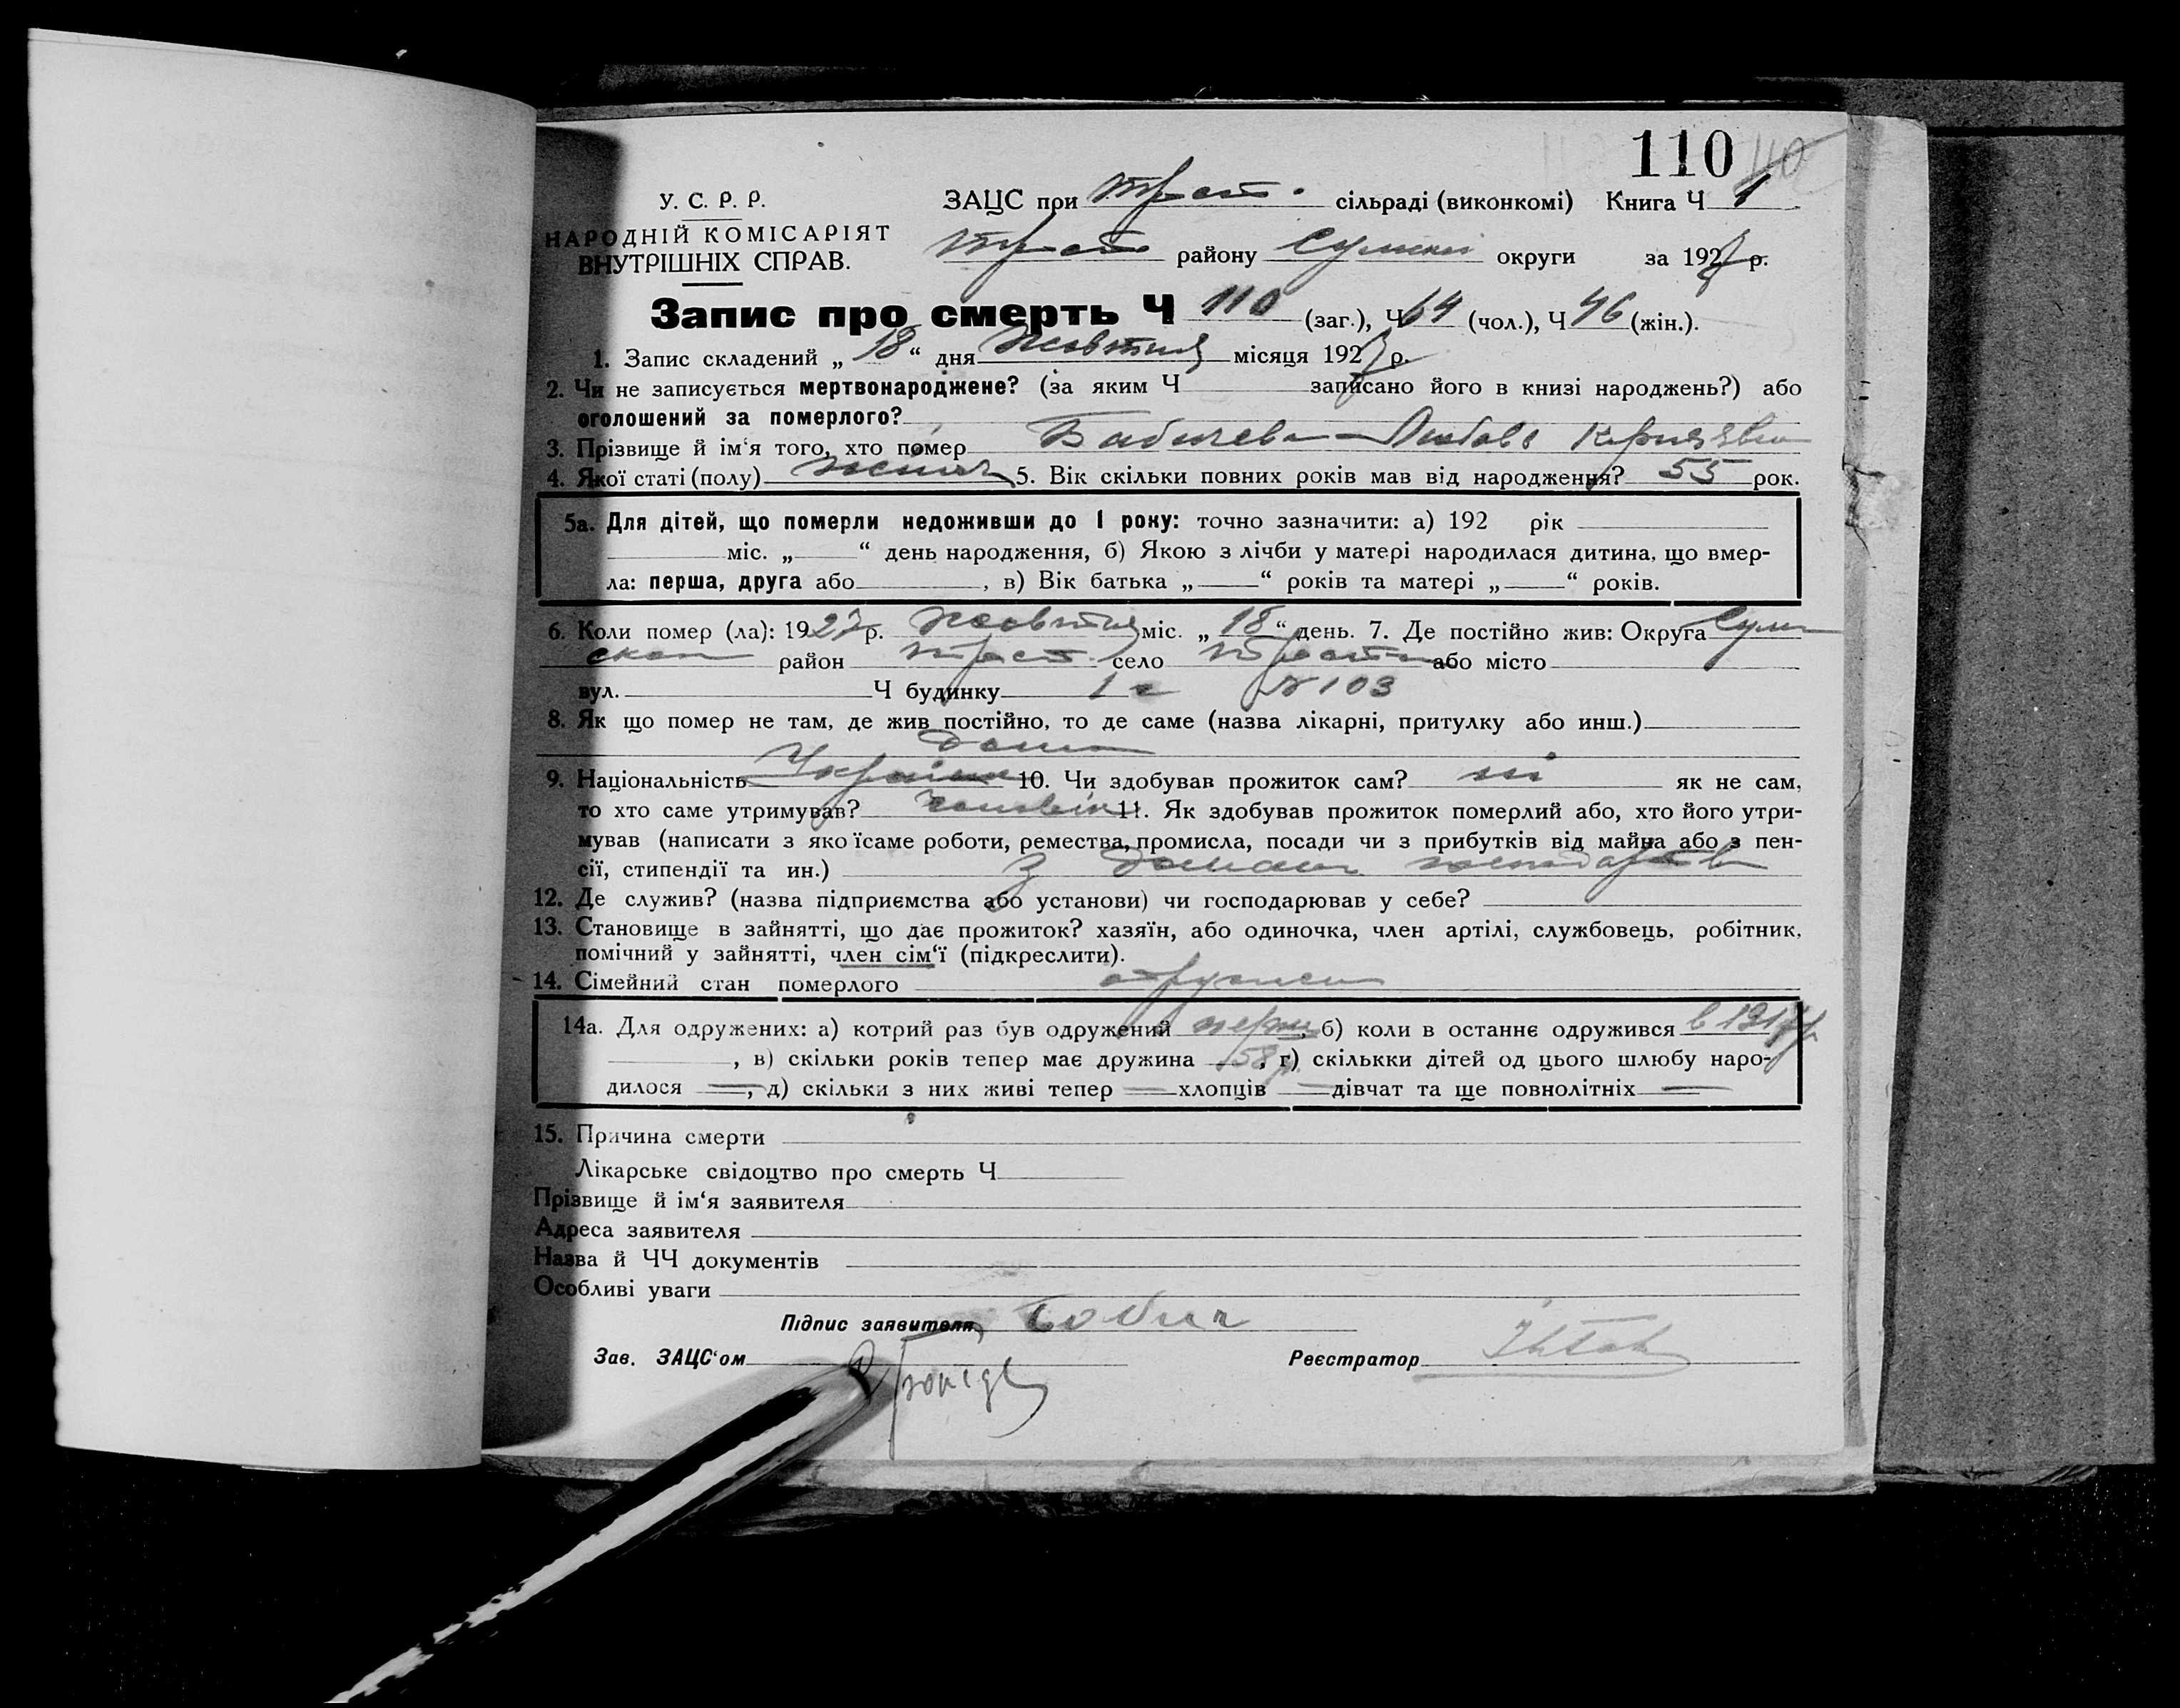 110 110
У. С. Р. Р.
ЗАЦС при Трост. сільраді (виконкомі) Книга Ч 1
НАРОДНІЙ КОМІСАРІЯТ
ВНУТРІШНІХ СПРАВ.
Трост району Сумской округи за 1927 р.
Запис про смерть Ч 110 (заг.), Ч 64 (чол.), Ч 46 (жін.).
1. Запис складений „ 18 “ дня Жовтня місяця 1927 р.
2. Чи не записується мертвонароджене? (за яким Ч записано його в книзі народжень?) або
оголошений за померлого?
3. Прізвище й ім‘я того, хто помер Бабичева Любовь
4. Якої статі (полу) жіноч 5. Вік скільки повних років мав від народження? 55 рок.
5а. Для дітей, що померли недоживши до 1 року: точно зазначити: а) 192 рік
міс. „ “ день народження, б) Якою з лічби у матері народилася дитина, що вмер-
ла: перша, друга або , в) Вік батька „ “ років та матері „ “ років.
6. Коли помер (ла): 1927 р. Жовтня міс. „ 18 “ день. 7. Де постійно жив: Округа Сум
ской район Трост. село або місто
вул. Ч будинку 1 г № 103
8. Як що помер не там, де жив постійно, то де саме (назва лікарні, притулку або инш.)
дома
9. Національність Україн 10. Чи здобував прожиток сам? ні як не сам,
то хто саме утримував? чоловік 11. Як здобував прожиток померлий або, хто його утри-
мував (написати з яко їсаме роботи, ремества, промисла, посади чи з прибутків від майна або з пен-
сії, стипендії та ин.) З домаш господарства
12. Де служив? (назва підприємства або установи) чи господарював у себе?
13. Становище в зайнятті, що дає прожиток? хазяїн, або одиночка, член артілі, службовець, робітник,
помічний у зайнятті, член сім‘ї (підкреслити).
14. Сімейний стан померлого
14а. Для одружених: а) котрий раз був одружений перш, б) коли в останнє одружився в 1917 р
, в) скільки років тепер має дружина 58 р, г) скількки дітей од цього шлюбу наро-
дилося —, д) скільки з них живі тепер — хлопців — дівчат та ще повнолітніх —
15. Причина смерти
Лікарське свідоцтво про смерть Ч
Прізвище й ім‘я заявителя
Адреса заявителя
Назва й ЧЧ документів
Особливі уваги
Підпис заявителя Бабич
Зав. ЗАЦС‘ом Реєстратор